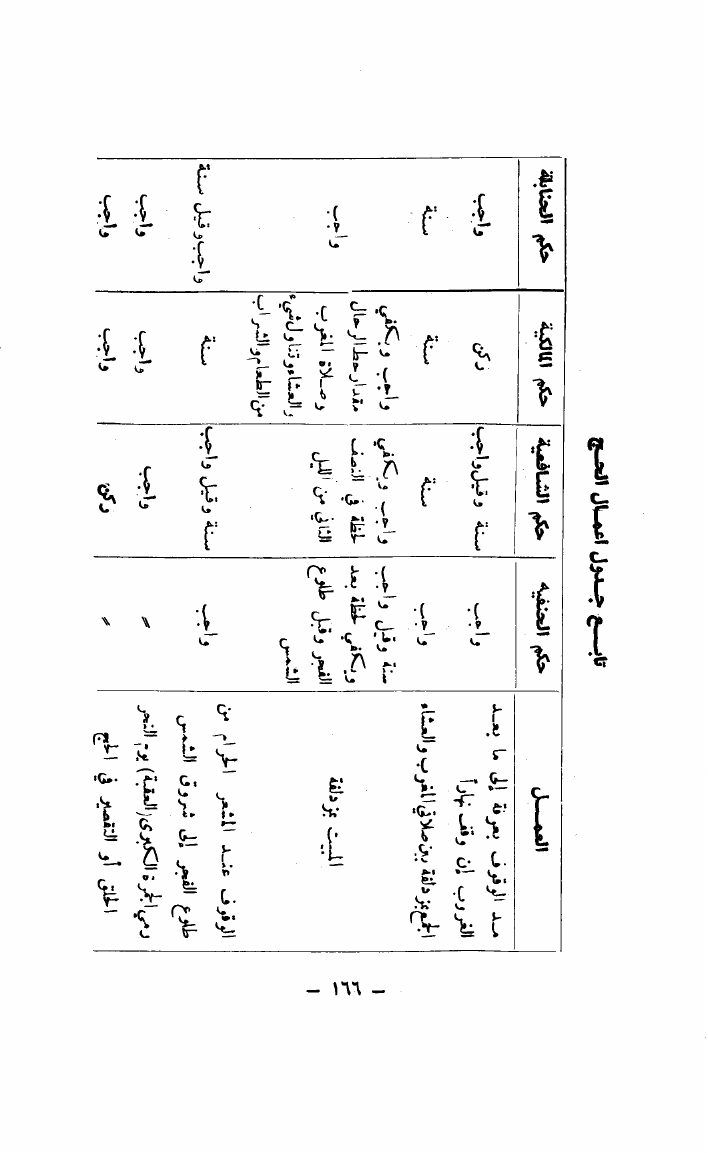 تابع جدول اعمال الحج
العمل
حكم الحنفيه
حكم الشافعية
حكم المالكية
حكم الحنابلة
مد الوقوف بعرفة إلى ما بعد
الغروب إن وقف نهاراً
واجب
سنة وقيل واجب
ركن
واجب
الجمع بمزدلفة بين صلاتي المغرب والعشاء
واجب
سنة
سنة
سنة
المبيت بمزدلفة
سنة وقيل واجب
ويكفي لحظة بعد
الفجر وقبل طلوع
الشمس
واجب ويكفي
لحظة في النصف
الثاني من الليل
واجب ويكفي
مقدار حط الرحال
وصلاة المغرب
والعشاء وتناول شيء
من الطعام والشراب
واجب
الوقوف عند المشعر الحرام من
طلوع الفجر إلى شروق الشمس
واجب
سنة وقيل واجب
سنة
واجب وقيل سنة
رمي الجمرة الكبرى (العقبة) يوم النحر
〃
واجب
واجب
واجب
الحلق أو التقصير في الحج
〃
ركن
واجب
واجب
– ١٦٦ –